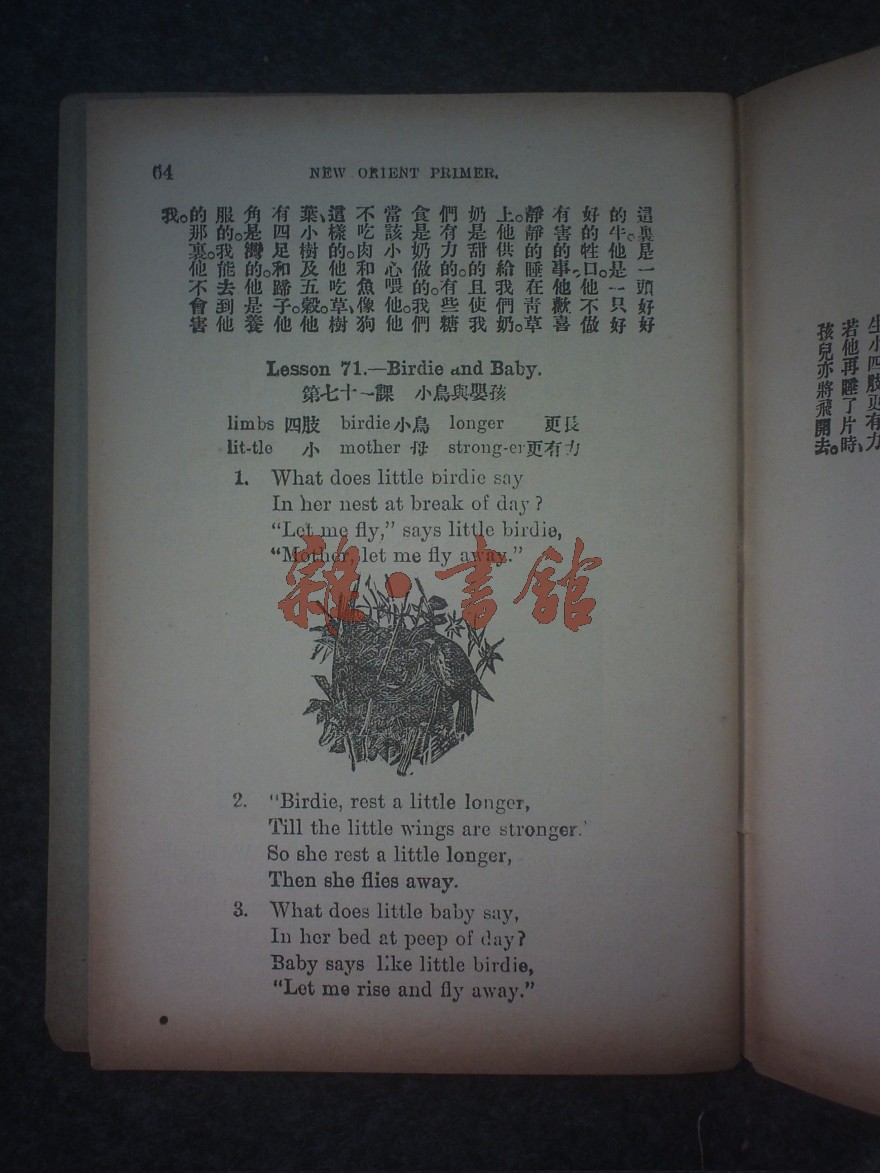 64
NEW ORIENT PRIMER.
這裏是一頭好好
的牛。他是一只好
好的牲口。他不做
有害的事。他歡喜
靜靜的睡在靑草
上。他供給我們奶。
奶是甜的且使我
們有力的。有些糖
食是奶做的。我們
當該小心喂他。他
不吃肉和魚像狗
這樣的。他吃草、樹
葉、小樹及五穀。他
有四足和蹄子。他
角是灣的。他是養
服的。我能去到他
的那裏。他不會害
我。
Lesson 71.—Birdie and Baby.
第七十一課 小鳥與嬰孩
limbs 四肢 birdie 小鳥 longer 更長
lit-tle 小 mother 母 strong-er 更有力
1. What does little birdie say
In her nest at break of day?
“Let me fly,” says little birdie,
“Mother, let me fly away.”
雜·書館
2. “Birdie, rest a little longer,
Till the little wings are stronger.’
So she rest a little longer,
Then she flies away.
3. What does little baby say,
In her bed at peep of day?
Baby says like little birdie,
“Let me rise and fly away.”
小四肢更有力
若他再睡了片時、
孩兒亦將飛開去。